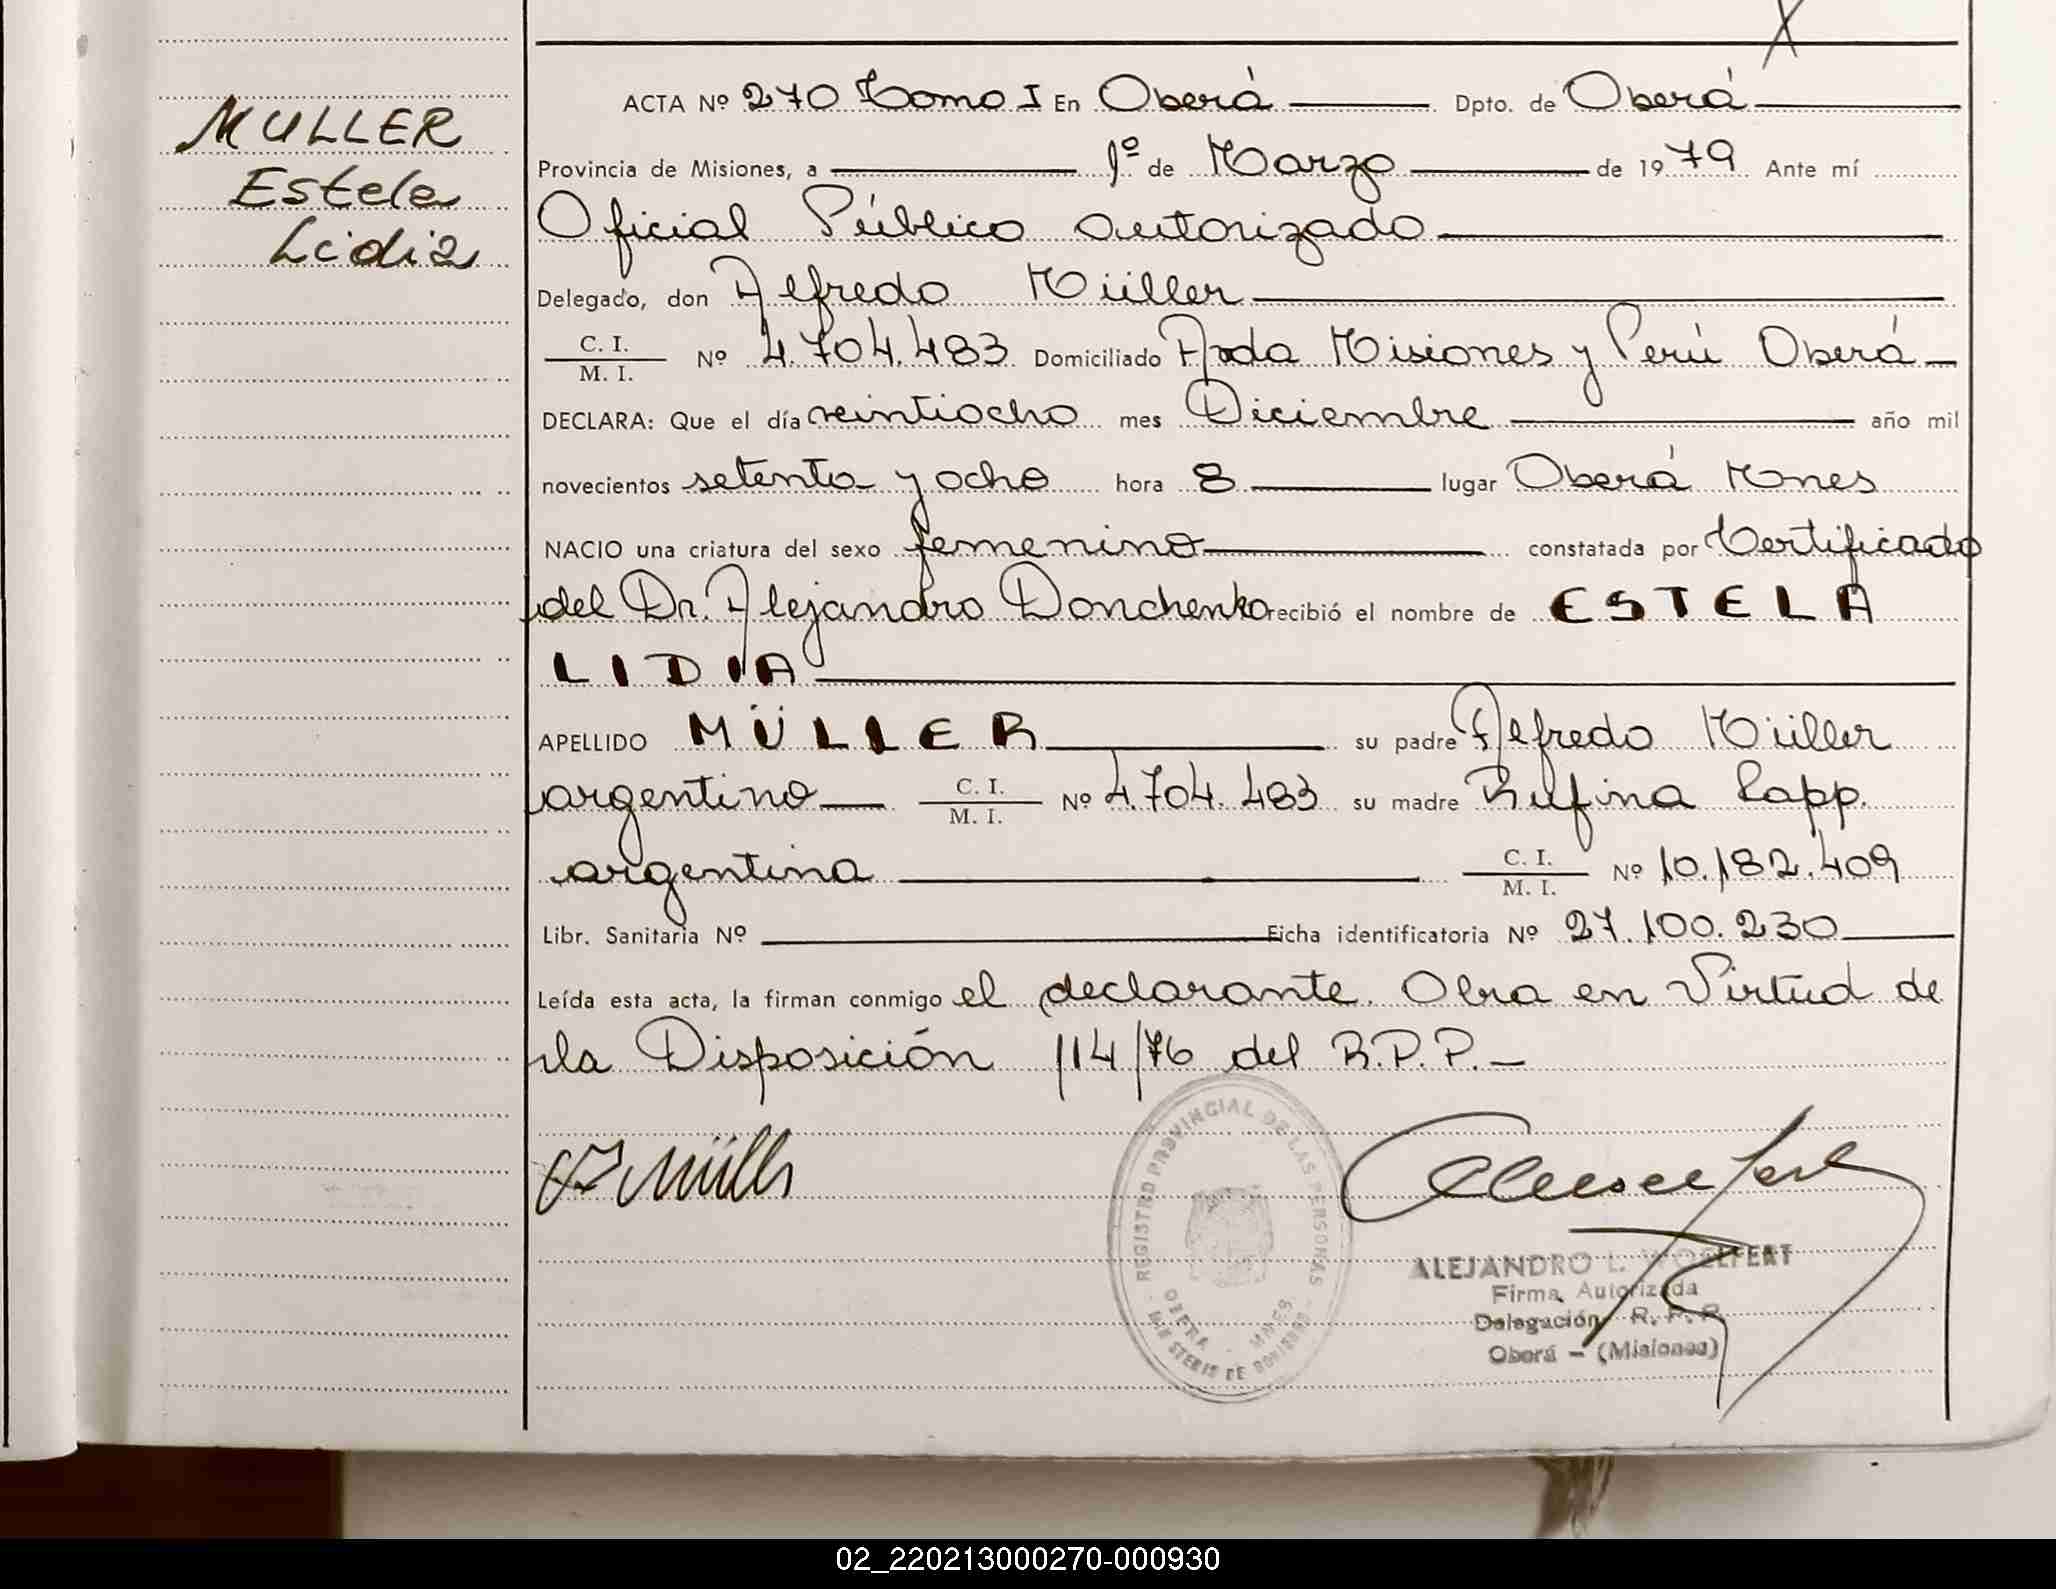 MULLER
Estela
Lidia
ACTA Nº 270 Tomo I En Oberá Dpto. de Oberá
Provincia de Misiones, a 1º de Marzo de 1979 Ante mí
Oficial Público autorizado
Delegado, don Alfredo Müller
C. I.
M. I. Nº 4.704.483 Domiciliado Avda Misiones y Perú Oberá
DECLARA: Que el día veintiocho mes Diciembre año mil
novecientos setenta y ocho hora 8 lugar Oberá Mnes
NACIO una criatura del sexo femenino constatada por Certificado
del Dr. Alejandro Donchenko recibió el nombre de ESTELA
LIDIA
APELLIDO MÜLLER su padre Alfredo Müller
argentino C. I. M. I. Nº 4.704.483 su madre Rufina Rapp.
argentina C. I. M. I. Nº 10.182.409
Libr. Sanitaria Nº Ficha identificatoria Nº 27.100.230
Leída esta acta, la firman conmigo el declarante. Obra en Virtud de
la Disposición 114/76 del R.P.P.-
REGISTRO PROVINCIAL DE LAS PERSONAS
OBERA - MNES.
MINISTERIO DE GOBIERNO
ALEJANDRO L. WOELFERT
Firma Autorizada
Delegación R. P. P.
Oberá - (Misiones)
02_220213000270-000930